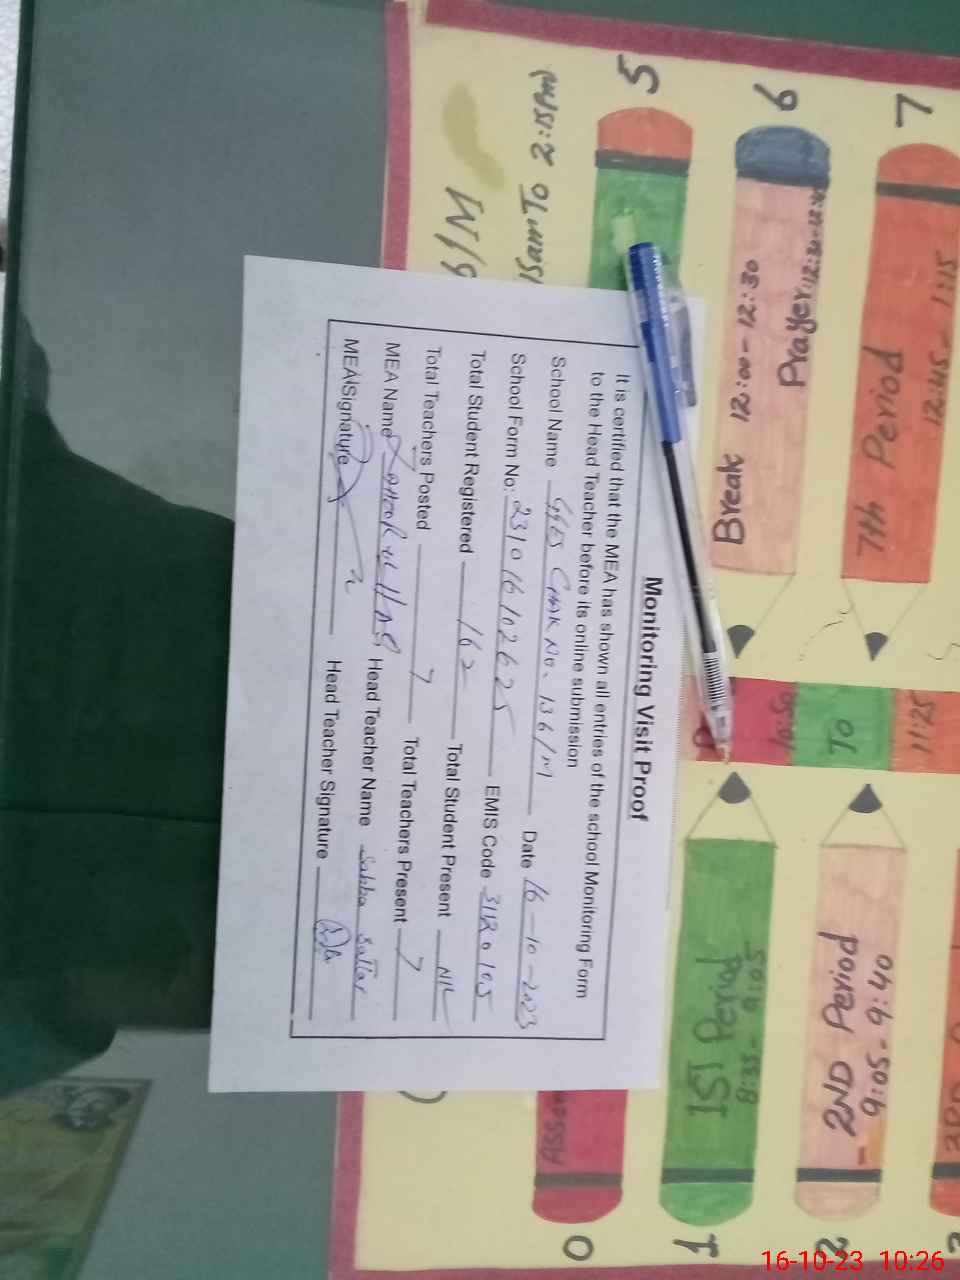 Monitoring Visit Proof
It is certified that the MEA has shown all entries of the school Monitoring Form
to the Head Teacher before its online submission
School Name GGES Chak No. 136/M Date 16-10-2023
School Form No: 231016102625 EMIS Code 31120105
Total Student Registered 162 Total Student Present NIL
Total Teachers Posted 7 Total Teachers Present 7
MEA Name Head Teacher Name Sattar
MEA Signature Head Teacher Signature
6/M
To 2:15Pm)
0
1
1ST Period
8:35- 9:05
2
2ND Period
9:05-9:40
10:50
To
11:25
5
6
Break 12:00-12:30
Prayer:12:30-12:45
7
7th Period
12:45-1:15
16-10-23 10:26